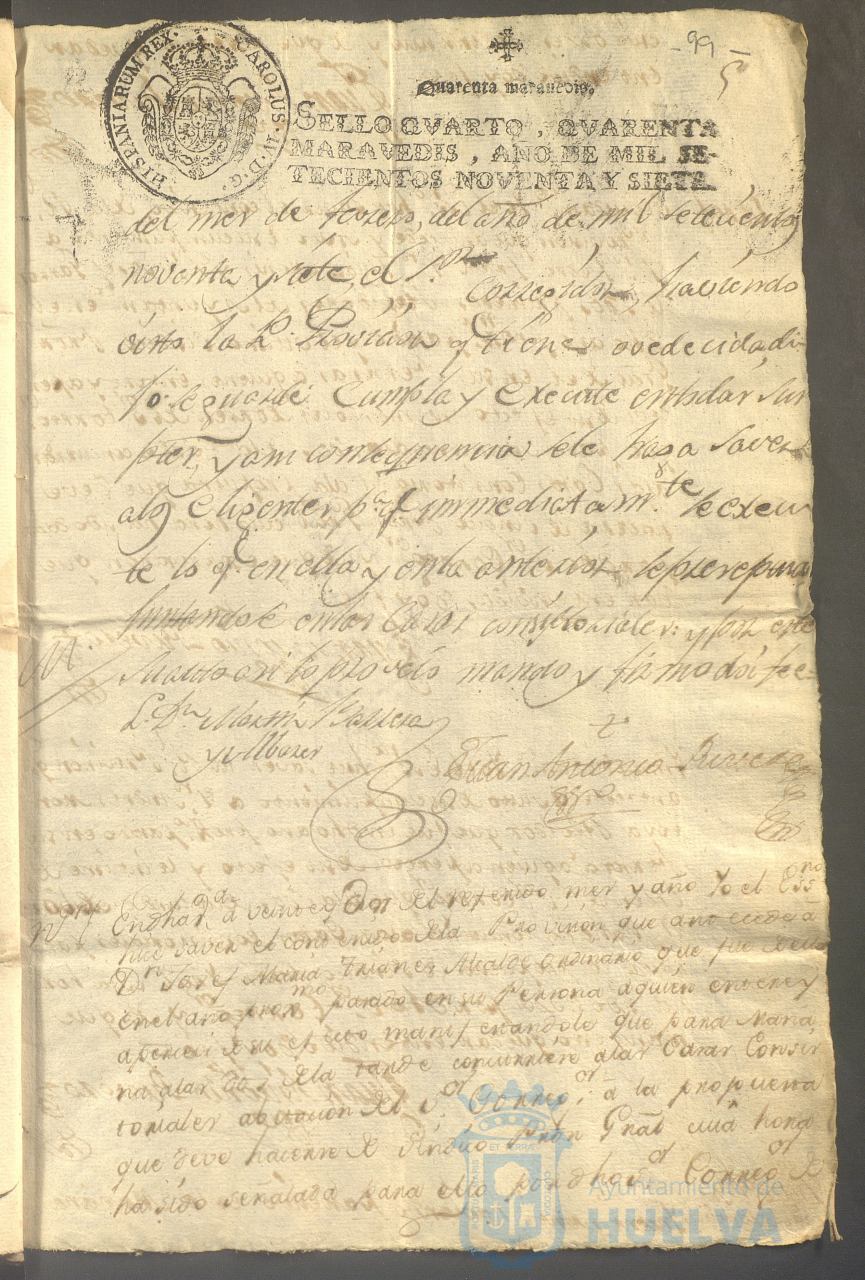 HISPANIARUM REX. CAROLUS. IV. D. G.
99
5
Quarenta maravedis.
SELLO QVARTO, QVARENTA
MARAVEDIS, AÑO DE MIL SE-
TECIENTOS NOVENTA Y SIETE.
del mes de febrero, del año de mil setecientos
noventa y siete, el Sor Corregidor, haviendo
visto la Rl Provision q tiene ovedecida, di
Jo se guarde Cumpla y execute en todas sus
ptes, y a su consequencia se le haga saver
a los eligentes pa q immediatamte se execu
te lo q en ella y en la anterior se
Juntandose en las Casas consistoriales: y por este
su auto asi lo proveio mando y firmo doi fee
L. Dn Martin
y Albarer
Juan Antonio Rivera
En dha a veinte y dos del referido mes y año Yo el Essno
hice saver el contenido de la Provision que antecede a
Dn Josef Maria Trianes Alcalde ordinario que fue
en el año proxmo pasado en su Persona a quien entere y
aperciví manifestandole que para
na a las de la tarde concurriere a las Casas Consis
toriales avitacion del Sor Correor a la propuesta
que deve hacerse de Sindico Pror Gnal cuia hora
ha sido señalada para ello por dho Sor Correor
Ayuntamiento de
HUELVA